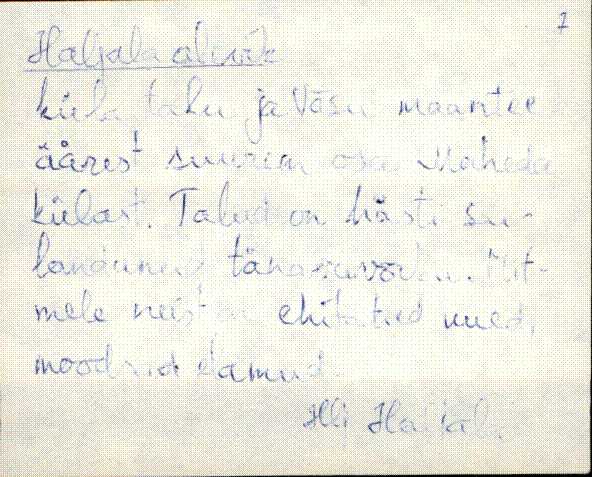 7
Haljala alevik
küla talu ja Võsu maantee
äärest suurem osa Maheda
külast. Talud on hästi su-
landunud tänavavõrku. Mit-
mele neist on ehitatud uued,
moodsad elamud.
Illi Haljala